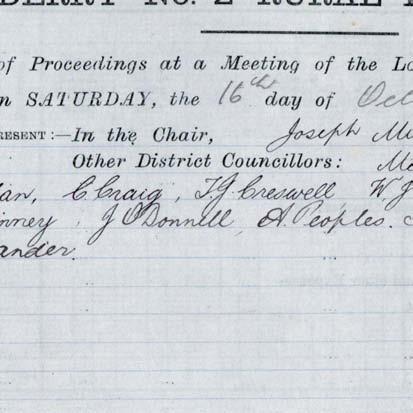 DERRY NO. 2 RURAL
of Proceedings at a Meeting of the Lo
n SATURDAY, the 16th day of Oct
RESENT :—In the Chair, Joseph
Other District Councillors:
C Craig, T J Creswell, W J
nney, J O'Donnell, A Peoples.
ander.